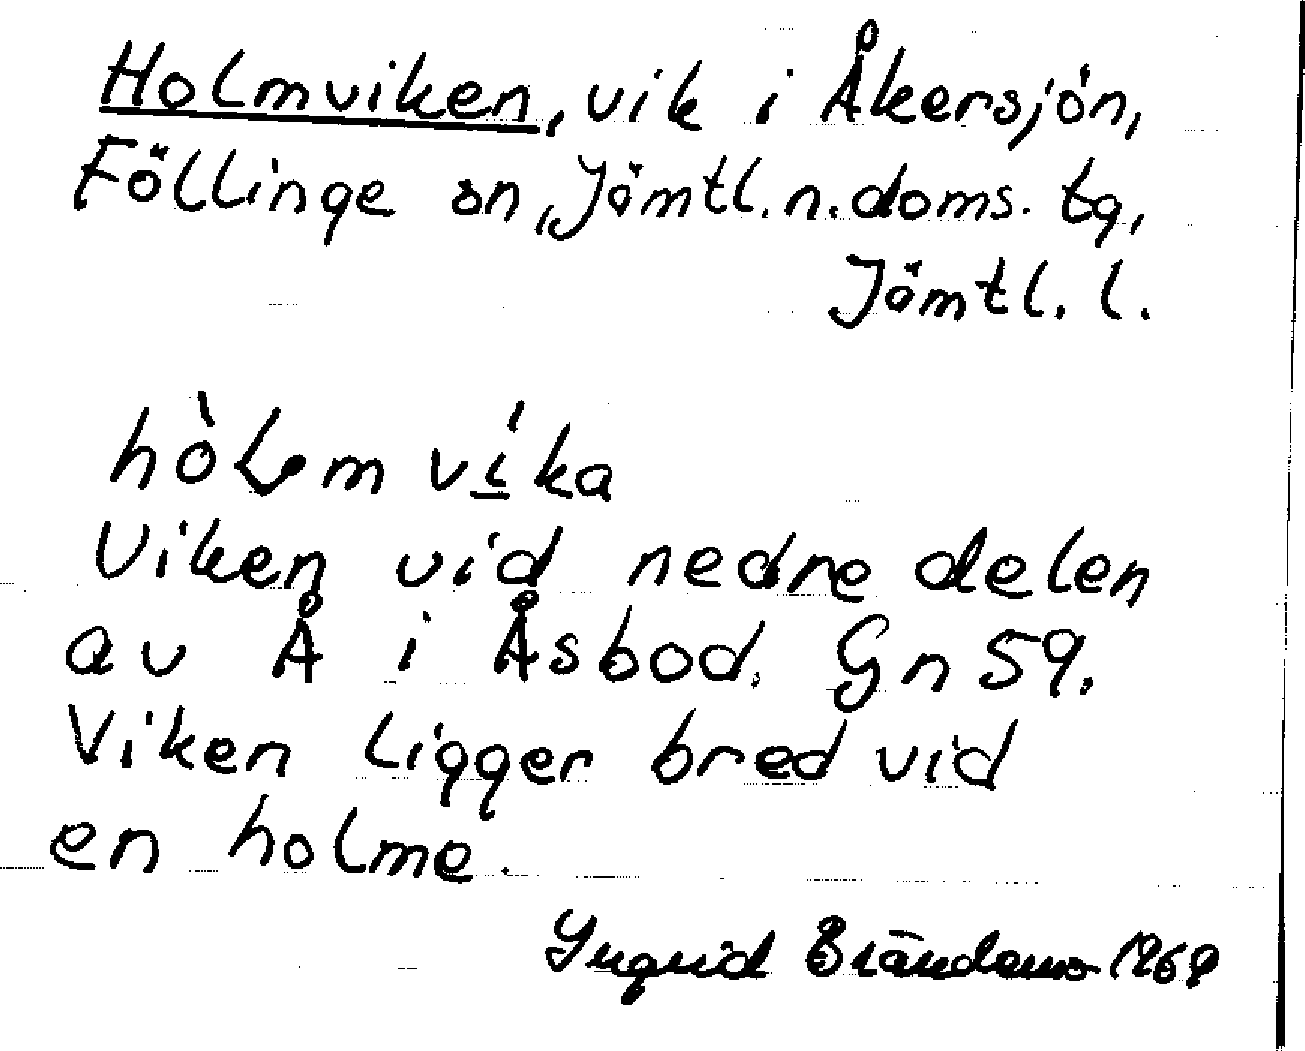 Holmviken, vik i Åkersjön,
Föllinge sn, Jämtl. n. doms. tg,
Jämtl. l.
hòLm víka
Viken vid nedre delen
av Å i Åsbod. Gn 59.
Viken ligger bred vid
en holme.
Ingrid 1969